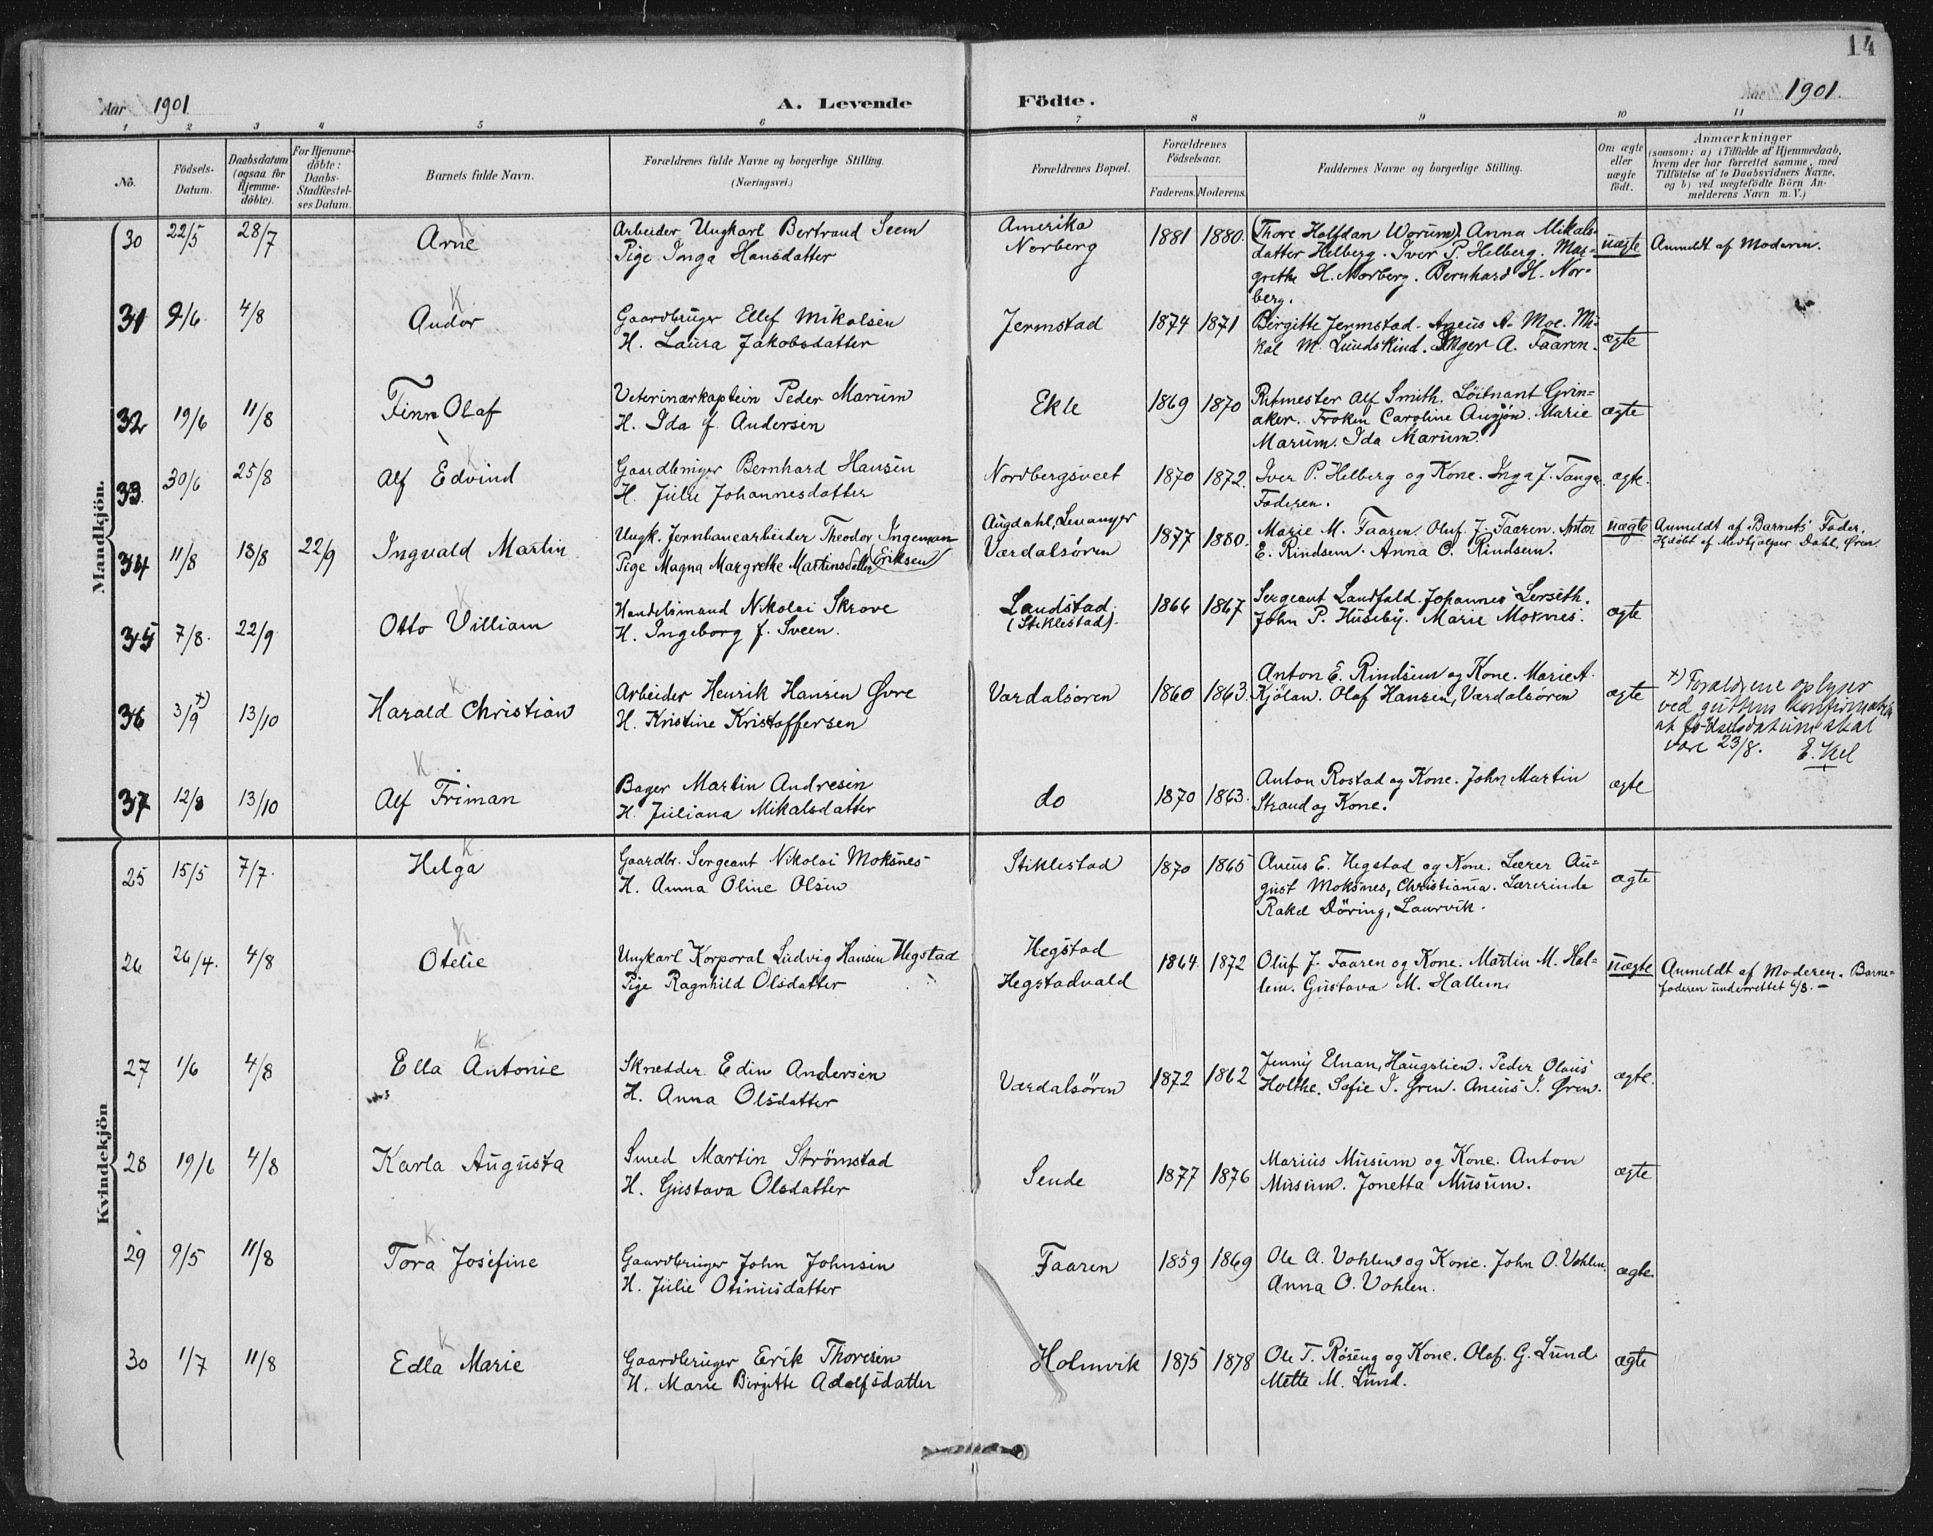 14
Aar 1901 A. Levende Födte. Aar 1901.
1 2 3 4 5 6 7 8 9 10 11
No. Födsels-Datum. Daabsdatum (ogsaa for Hjemme-döbte). For Hjemme-döbte: Daabs-Stadfæstel-ses Datum. Barnets fulde Navn. Forældrenes fulde Navne og borgerlige Stilling. (Næringsvei.) Forældrenes Bopæl. Forældrenes Födselsaar. Faderens. Moderens. Faddernes Navne og borgerlige Stilling. Om ægte eller uægte födt. Anmærkninger (saasom: a) i Tilfælde af Hjemmedaab, hvem der har forrettet samme, med Tilföielse af to Daabsvidners Navne, og b) ved uægtefödte Börn An-melderens Navn m. V.)
Mandkjön.
30 22/5 28/7 Arne K Arbeider Ungkarl Bertrand Seem Amerika 1881 1880. (Thore Halfdan Worum) Anna Mikals- uægte Anmeldt af Moderen.
Pige Inga Hansdatter Norberg datter Helberg. Iver P. Helberg. Mar-
grethe H. Norberg. Bernhard H. Nor-
berg.
31 9/6 4/8 Andor K Gaardbruger Ellef Mikalsen Jermstad 1874 1871 Birgitte Jermstad. Aneus A. Moe. Mi- ægte
H. Laura Jakobsdatter kal M. Lundskind. Inger A. Faaren.
32 19/6 11/8 Finn Olaf Veterinærkaptein Peder Marum Ekle 1869 1870 Ritmester Alf Smith. Löitnant Grin- ægte
H. Ida f. Andersen aker. Fröken Caroline Augjön. Marie
Marum. Ida Marum.
33. 30/6 25/8 Alf Edvind K Gaardbruger Bernhard Hansen Nordbergsveet 1870 1872. Iver P. Helberg og Kone. Inga J. Tange. ægte.
H. Julie Johannesdatter Faderen.
34 11/8 18/8 22/9 Ingvald Martin Ungk. Jernbanearbeider Theodor Ingeman Augdahl, Levanger 1877 1880. Marie M. Faaren. Oluf J. Faaren. Anton uægte Anmeldt af Barnets Fader.
Pige Magna Margrethe Martinsdatter (Eriksen) Værdalsören E. Rindsem. Anna O. Rindsem. Hjdöbt af Medhjælper Dahl, Øren
35 7/8. 22/9 Otto Villiam K Handelsmand Nikolai Skrove Landstad. 1866 1867 Sergeant Landfald. Johannes Lerseth. ægte
H. Ingeborg f. Sveen. (Stiklestad). John P. Huseby. Marie Moknes.
36 3/9 x) 13/10 Harald Christian K Arbeider Henrik Hansen Øvre Værdalsören 1860 1863. Anton E. Rindsem og Kone. Marie A. ægte x) Forældrene oplyser
H. Kristine Kristoffersen Kjölan. Olaf Hansen, Værdalsören ved guttens konfirmation
at födselsdatum skal
være 23/8. E. Kel
37 12/8 13/10 Alf Friman K. Bager Martin Andresen do 1870 1863. Anton Rostad og Kone. John Martin ægte
H. Juliana Mikalsdatter Strand og Kone.
Kvindekjön
25 15/5 7/7. Helga K. Gaardbr. Sergeant Nikolai Moksnes Stiklestad 1870 1865 Aneus E. Hegstad og Kone. Lærer Au- ægte
H. Anna Oline Olsen gust Moksnes, Christiania. Lærerinde
Rakel Döring, Laurvik.
26 26/4. 4/8 Otelie K. Ungkarl Korporal Ludvig Hansen Hegstad Hegstad 1864 1872 Oluf J. Faaren og Kone. Martin M. Hal- uægte Anmeldt af Moderen. Barne-
Pige Ragnhild Olsdatter Hegstadvald lem. Gustava M. Hallem. faderen underrettet 6/8.
27 1/6 4/8 Ella Antonie K. Skrædder Edin Andersen Værdalsören 1872 1862 Jenny Elnan, Haugslien. Peder Olaus ægte.
H. Anna Olsdatter Holthe. Sofie I. Øren. Aneus I. Øren.
28 19/6 4/8 Karla Augusta Smed Martin Strömstad Sende 1877 1876 Marius Musum og Kone. Anton ægte
H. Gustava Olsdatter Musum. Jonetta Musum.
29 9/5 11/8 Tora Josefine K. Gaardbruger John Johnsen Faaren 1859 1869 Ole A. Vohlen og Kone. John O. Vohlen. ægte
H. Julie Otinusdatter Anna O. Vohlen.
30 1/7 11/8 Edla Marie K Gaardbruger Erik Thoresen Holmvik 1875 1878 Ole T. Röseng og Kone. Olaf. G. Lund ægte
H. Marie Birgitte Adolfsdatter Mette M. Lund.